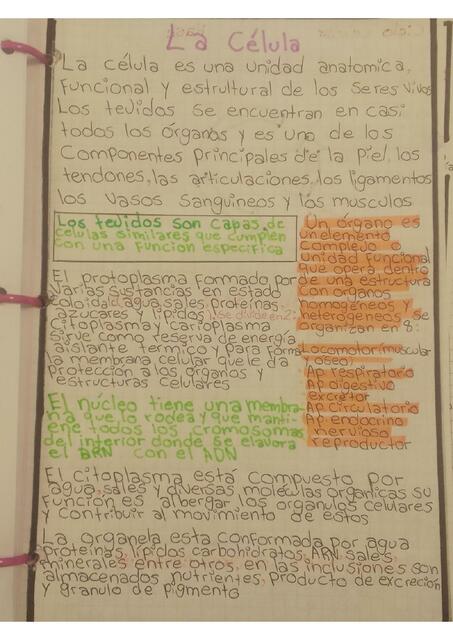 La Célula
La célula es una unidad anatomica,
Funcional y estrultural de los seres vivos
Los tevidos se encuentran en casi
todos los órganos y es uno de los
Componentes principales de la piel, los
tendones, las articulaciones, los ligamentos
los vasos sanguíneos y los musculos
Los tevidos son capas de
celulas similares que cumplen
con una funcion especifica
El protoplasma formado por
varias sustancias en estado
coloidal, agua, sales, proteínas,
azucares y lípidos, se divide en 2:
Citoplasma y carioplasma
Sirve como reserva de energía
aislante termico y para forma
la membrana celular que le da
Protección a los órganos y
estructuras celulares
Un órgano es
un elemento
complejo o
unidad funcional
que opera dentro
de una estructura
con organos
homogéneos y
heterogéneos se
organizan en 8:
Locomotor(muscular
y oseo)
Ap. respiratorio
Ap. digestivo
excretor
Ap. circulatorio
Ap. endocrino
nervioso
reproductor
El núcleo tiene una membra-
na que lo rodea y que manti-
ene todos los cromosomas
del interior donde se elavora
el ARN con el ADN
El citoplasma está compuesto por
agua, sales y diversas moléculas orgánicas su
Función es albergar los organulos celulares
y contribuir al movimiento de estos
La organela esta conformada por agua
proteínas, lípidos carbohidratos, ARN, sales
minerales entre otros, en las inclusiones son
almacenados nutrientes, producto de excreción
y granulo de pigmento